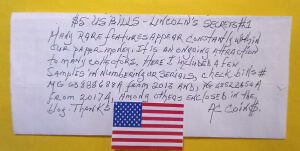 $5 US BILLS - LINCOLN'S SECRETS #1
MANY RARE FEATURES APPEAR CONSTANTLY WITHIN
OUR PAPER-MONEY. IT IS AN ONGOING ATTRACTION
TO MANY COLLECTORS. HERE I INCLUDED A FEW
SAMPLES IN NUMBERING OR SERIALS, CHECK BILLS #
MG FROM 2013 AND
FROM 2017A, AMONG OTHERS ENCLOSED IN THE
BLOG. THANKS AC COINS.